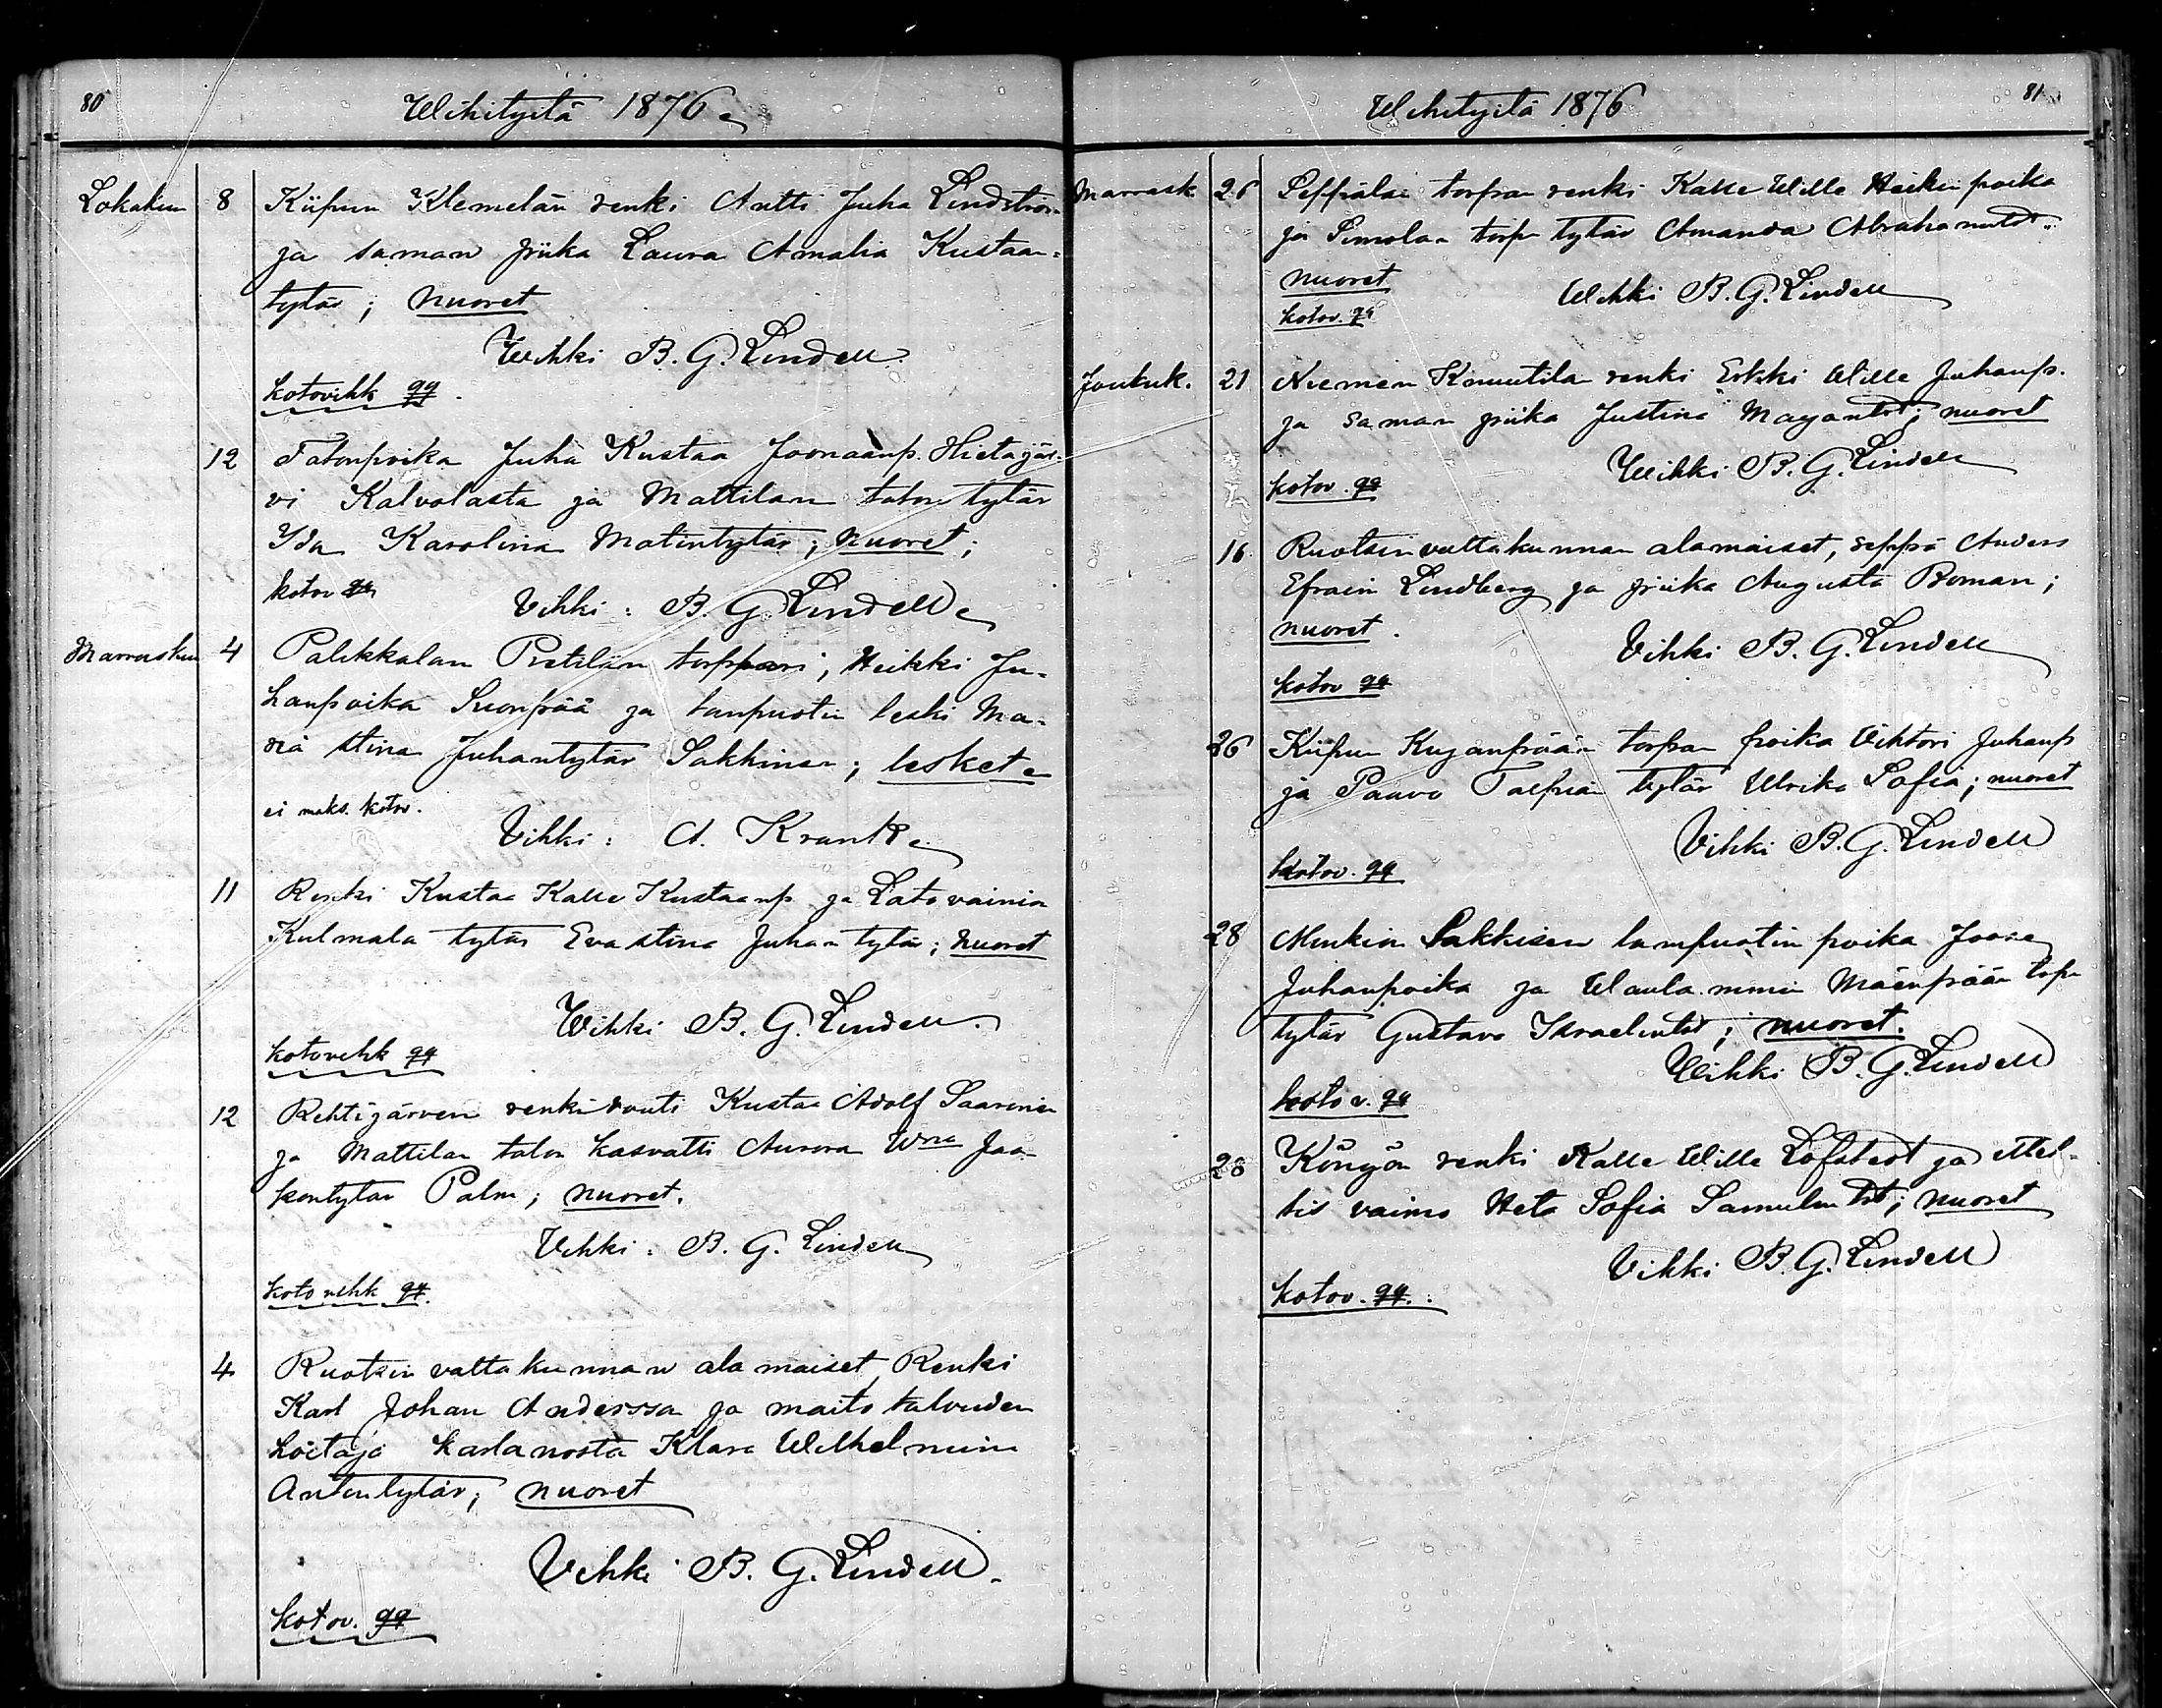 80
Wihityitä 1876
Lokakuu 8 Kiipun Klemelän renki Antti Juha Lindström
ja saman piika Laura Amalia Kustaan-
tytär; nuoret
Wihki B. G. Lindell
kotovihk qq.
12 Talonpoika Juha Kustaa Joonaanp. Hietajär-
vi Kalvolasta ja Mattilan talon tytär
Ida Karolina Matintytär; nuoret;
kotov qq Vihki: B. G. Lindell
Marraskuu 4 Palikkalan Pietilän torppari, Heikki Ju-
hanpoika Suonpää ja lampuotin leski Ma-
ria Stina Juhantytär Sakkinen; lesket
ei maks. kotov.
Vihki: A. Krank
11 Renki Kustaa Kalle Kustaanp ja Latovainio
Kulmala tytär Eva Stina Juhantytär; nuoret
Wihki B. G. Lindell.
kotovihk qq
12 Rehtijärven renkivouti Kustaa Adolf Saarinen
ja Mattilan talon kasvatti Aurora Wna Jaa-
kontytär Palm; nuoret.
Vihki: B. G. Lindell
kotovihk qq.
4 Ruotsin valtakunnan alamaiset, Renki
Karl Johan Andersson ja maitotalouden
hoitaja Klara Wilhelmina
Antintytär; nuoret
Vihki B. G. Lindell.
kotov. qq
Wihityitä 1876
81
Marrask. 26 Seppälän torpan renki Kalle Wille Heikinpoika
ja Simolan torp tytär Amanda Abrahamintr.
nuoret
Wihki B. G. Lindell
kotov. qq
Jouluk. 21 Niemen Knuutila renki Erkki Wille Juhanp.
ja saman piika Justina Mayantr; nuoret
Wihki B. G. Lindell
kotov. qq
16 Ruotsin valtakunnan alamaiset, seppä Anders
Efraim Lindberg ja piika Augusta Boman;
nuoret.
Vihki B. G. Lindell
kotov qq
26 Kiipun Kujanpään torpan poika Vihtori Juhanp
ja Paavo tytär Ulrika Sofia; nuoret
Vihki B. G. Lindell
kotov. qq
28 Minkiön Sakkisen lampuotin poika Joose
Juhanpoika ja Waulammin Mäenpään torp
tytär Gustava Israelintr; nuoret.
Wihki B. G. Lindell
kotov. qq
28 Köngön renki Kalle Wille Löfstedt ja
vaimo Heta Sofia Samulintr; nuoret
Vihki B. G. Lindell
kotov. qq.